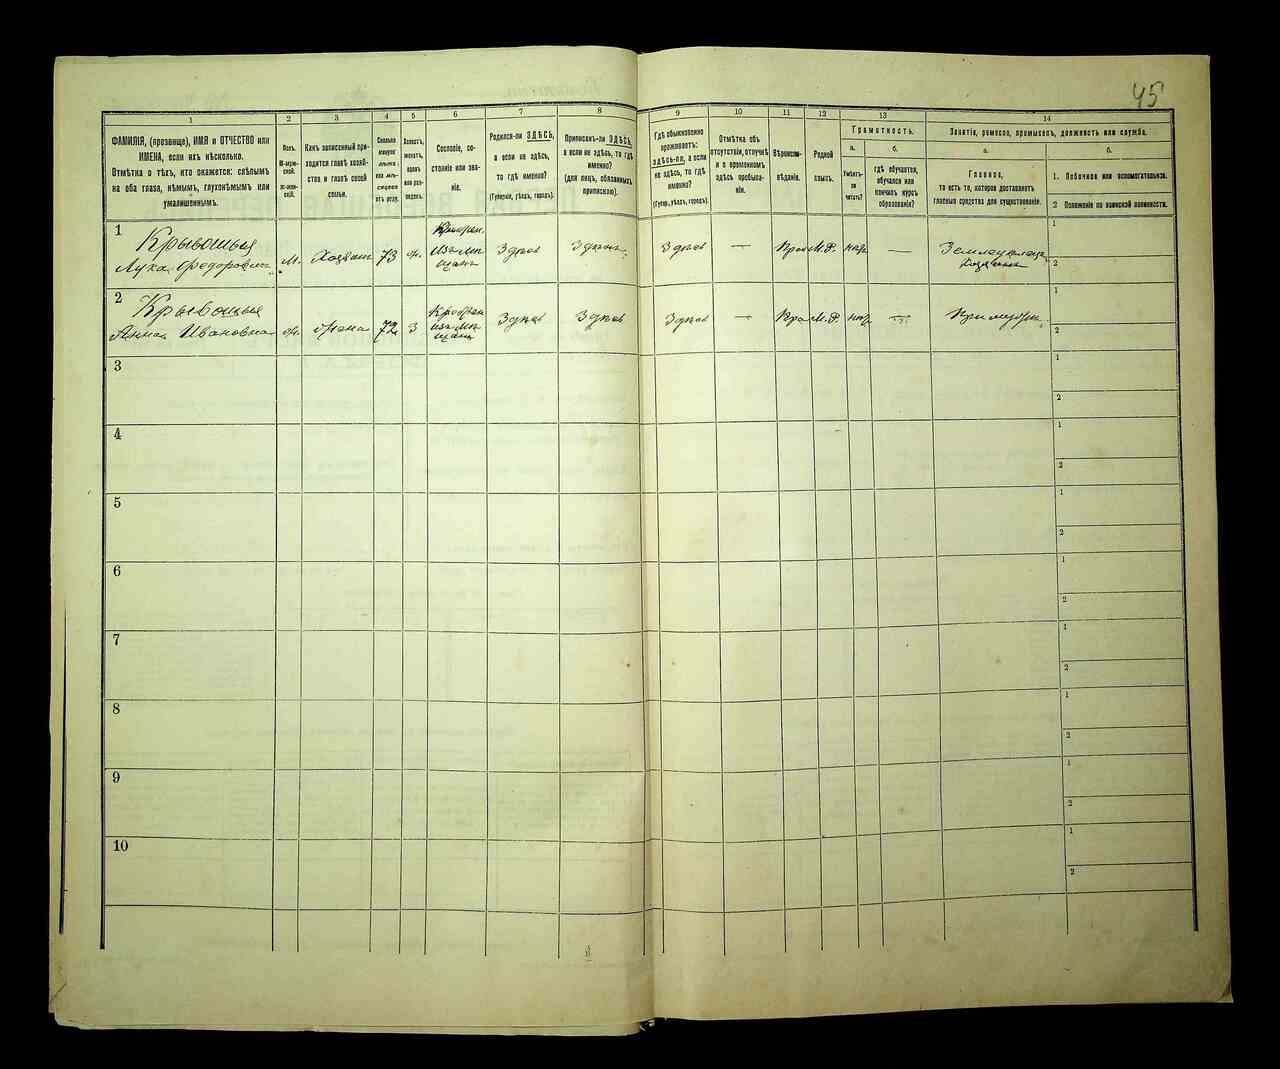 45
1 2 3 4 5 6 7 8 9 10 11 12 13 14
ФАМИЛІЯ, (прозвище), ИМЯ и ОТЧЕСТВО или
ИМЕНА, если ихъ нѣсколько.
Отмѣтка о тѣхъ, кто окажется: слѣпымъ
на оба глаза, нѣмымъ, глухонѣмымъ или
умалишеннымъ.
Полъ.
М-муж-
ской.
Ж-жен-
скій.
Какъ записанный при-
ходится главѣ хозяй-
ства и главѣ своей
семьи.
Сколько
минуло
лѣтъ
или мѣ-
сяцевъ
отъ роду.
Холостъ,
женатъ,
вдовъ
или раз-
веденъ.
Сословіе, со-
стояніе или зва-
ніе.
Родился-ли ЗДѢСЬ,
а если не здѣсь,
то гдѣ именно?
(Губернія, уѣздъ, городъ).
Приписанъ-ли ЗДѢСЬ,
а если не здѣсь, то гдѣ
именно?
(для лицъ, обязанныхъ
припискою).
Гдѣ обыкновенно
проживаетъ:
ЗДѢСЬ-ли, а если
не здѣсь, то гдѣ
именно?
(Губер., уѣздъ, городъ).
Отмѣтка объ
отсутствіи, отлучкѣ
и о временномъ
здѣсь пребыва-
ніи.
Вѣроиспо-
вѣданіе.
Родной
языкъ.
Грамотность.
а. б.
Умѣетъ-
ли
читать?
гдѣ обучается,
обучался или
кончилъ курсъ
образованія?
Занятіе, ремесло, промыселъ, должность или служба.
а. б.
Главное,
то есть то, которое доставляетъ
главныя средства для существованія.
1. Побочное или вспомогательное.
2 Положеніе по воинской повинности.
1 Лука Федоровъ М. 73 Здѣсь Здѣсь Здѣсь — Прав М.Р. нѣтъ — 1
2
2 Анна Ивановна ж. жена 72 Здѣсь Здѣсь Здѣсь — Пра М.Р. нѣтъ — 1
2
3 1
2
4 1
2
5 1
2
6 1
2
7 1
2
8 1
2
9 1
2
10 1
2